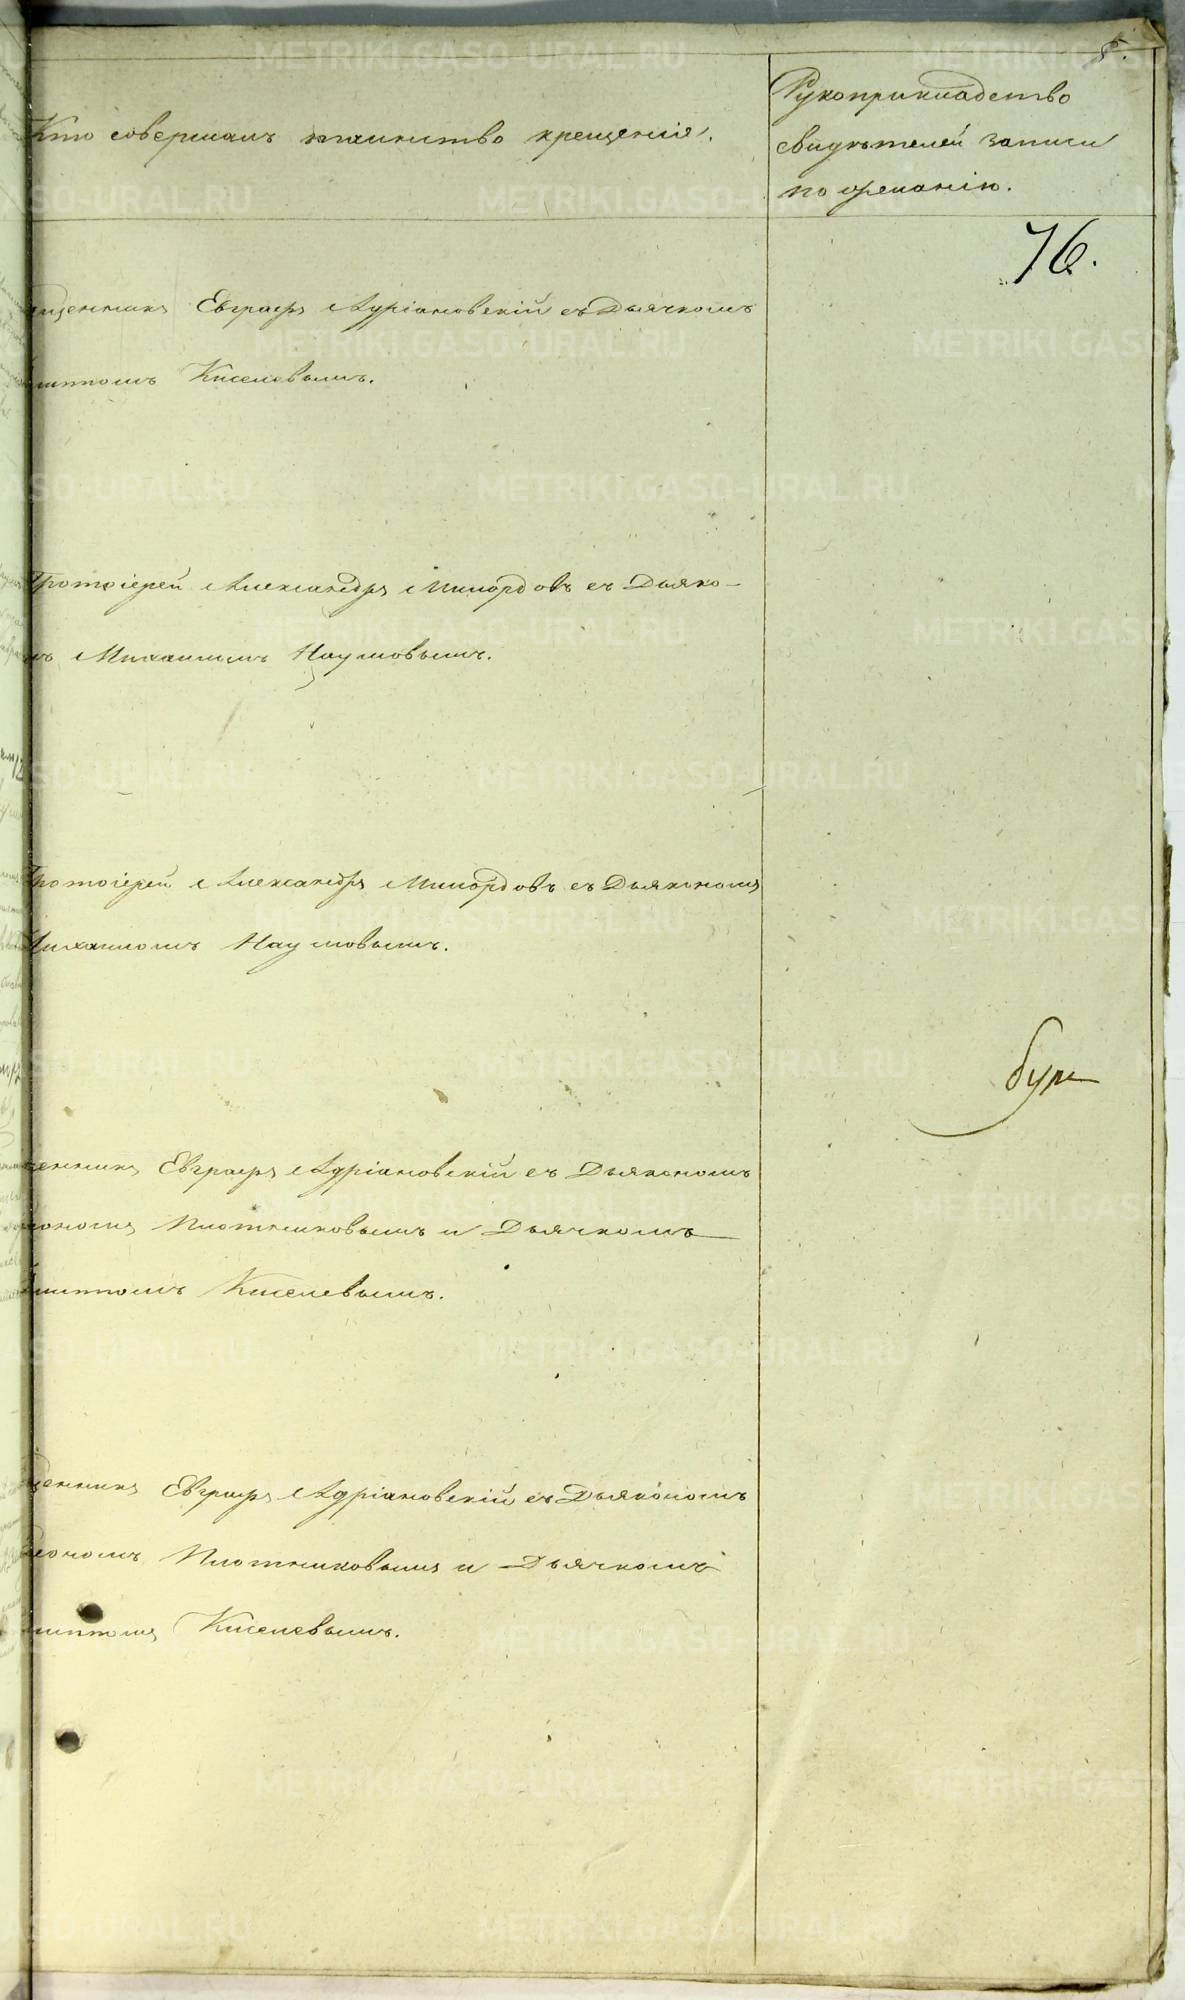 5.
Кто совершалъ таинство крещенія.
Рукоприкладство
свидѣтелей записи
по желанію.
76.
щенникъ Евграфъ Адріановскій съ Дьячкомъ
Киселевымъ.
Протоіерей Александръ Милордовъ съ Дьяко-
мъ Михаиломъ Наумовымъ.
Протоіерей Александръ Милордовъ съ Дьякономъ
Михаиломъ Наумовымъ.
щенникъ Евграфъ Адріановскій съ Дьякономъ
Плотниковымъ и Дьячкомъ
Киселевымъ.
щенникъ Евграфъ Адріановскій съ Дьякономъ
Плотниковымъ и Дьячкомъ
Киселевымъ.
METRIKI.GASO-URAL.RU